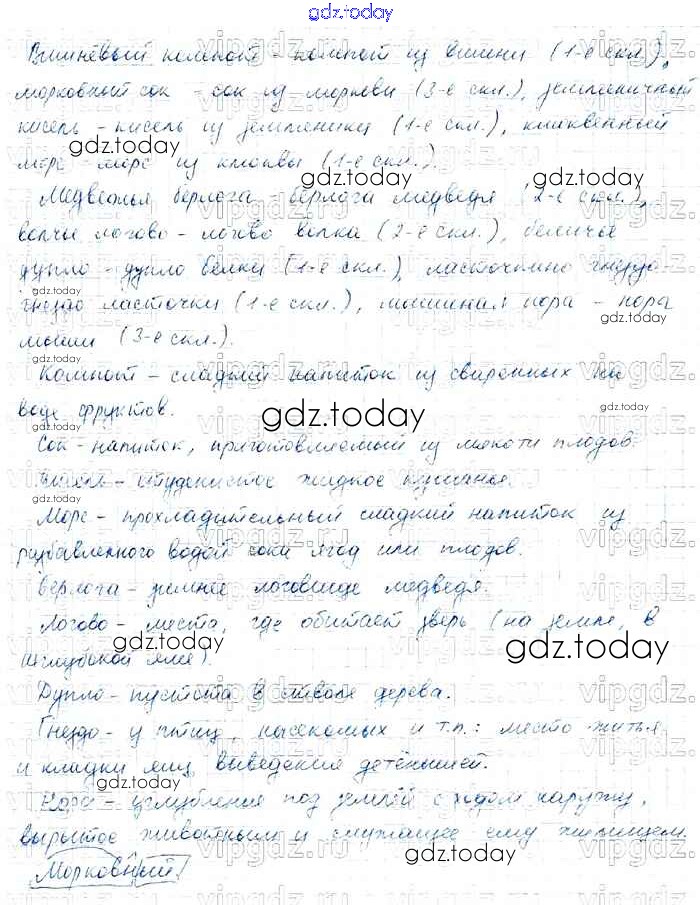 gdz.today
Вишнёвый компот - компот из вишни (1-е скл.),
морковный сок - сок из моркови (3-е скл.), земляничный
кисель - кисель из земляники (1-е скл.), клюквенный
gdz.today
морс - морс из клюквы (1-е скл.).
gdz.today
Медвежья берлога - берлога медведя (2-е скл.),
волчье логово - логово волка (2-е скл.), беличье
дупло - дупло белки (1-е скл.), ласточкино гнездо -
гнездо ласточки (1-е скл.), мышиная нора - нора
gdz.today
мыши (3-е скл.).
gdz.today
Компот - сладкий напиток из сваренных на
воде фруктов.
gdz.today
gdz.today
Сок - напиток, приготовляемый из мякоти плодов.
Кисель - студенистое жидкое кушанье.
gdz.today
Морс - прохладительный сладкий напиток из
разбавленного водой сока ягод или плодов.
Берлога - зимнее логовище медведя.
Логово - место, где обитает зверь (на земле, в
gdz.today
gdz.today
неглубокой яме).
Дупло - пустота в стволе дерева.
Гнездо - у птиц, насекомых и т.п.: место житья
и кладки яиц, выведения детёнышей.
gdz.today
Нора - углубление под землёй с ходом наружу,
вырытое животным и служащее ему жилищем.
gdz.today
Морковный
vipgdz.ru